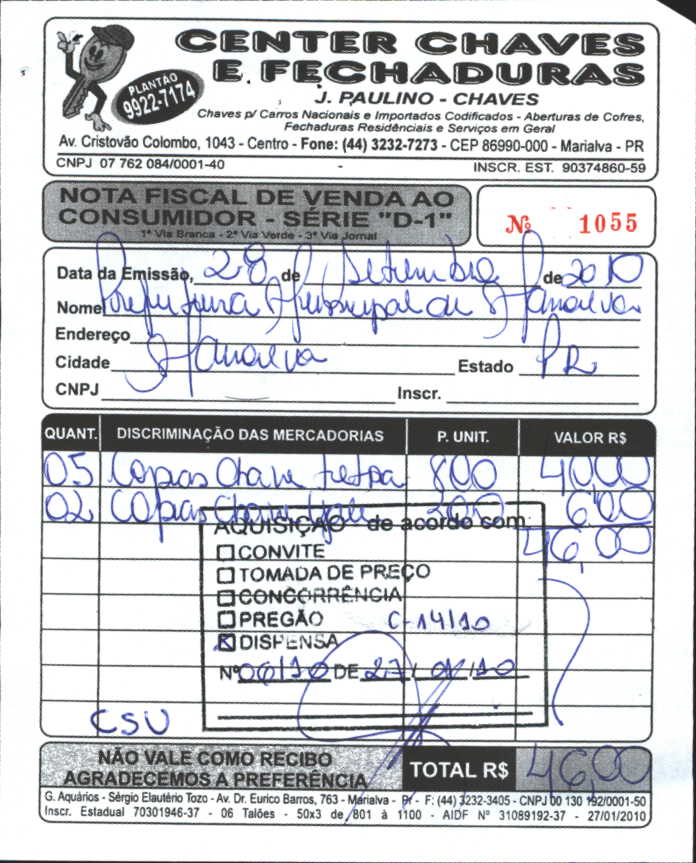 CENTER CHAVES
E FECHADURAS
PLANTÃO
9922-7174
J. PAULINO - CHAVES
Chaves p/ Carros Nacionais e Importados Codificados - Aberturas de Cofres,
Fechaduras Residênciais e Serviços em Geral
Av. Cristovão Colombo, 1043 - Centro - Fone: (44) 3232-7273 - CEP 86990-000 - Marialva - PR
CNPJ 07 762 084/0001-40 - INSCR. EST. 90374860-59
NOTA FISCAL DE VENDA AO
CONSUMIDOR - SÉRIE "D-1"
1ª Via Branca - 2ª Via Verde - 3ª Via Jornal
Nº 1055
Data da Emissão, 28 de Setembro de 2010
Nome Prefeitura Municipal de Marialva
Endereço
Cidade Marialva Estado PR
CNPJ Inscr.
QUANT. DISCRIMINAÇÃO DAS MERCADORIAS P. UNIT. VALOR R$
05 Copias Chave tetra 800 40,00
02 Copias Chave Yale 300 6,00
46,00
AQUISIÇÃO de acordo com
CONVITE
TOMADA DE PREÇO
CONCORRÊNCIA
PREGÃO C-14/10
DISPENSA
Nº 06/10 DE 27/01/10
CSU
NÃO VALE COMO RECIBO
AGRADECEMOS A PREFERÊNCIA
TOTAL R$ 46,00
G. Aquários - Sérgio Elautério Tozo - Av. Dr. Eurico Barros, 763 - Marialva - Pr - F: (44) 3232-3405 - CNPJ 00 130 192/0001-50
Inscr. Estadual 70301946-37 - 06 Talões - 50x3 de 801 à 1100 - AIDF Nº 31089192-37 - 27/01/2010